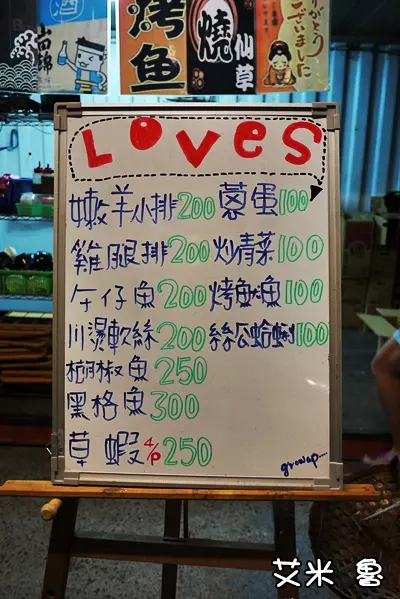 酒
烤魚
燒仙草
ありがとうございました
LOVES
嫩羊小排200 蔥蛋100
雞腿排200 炒青菜100
午仔魚200 烤魷魚100
川燙軟絲200 絲瓜蛤蜊100
胡椒魚250
黑格魚300
草蝦4/P 250
艾米 魯